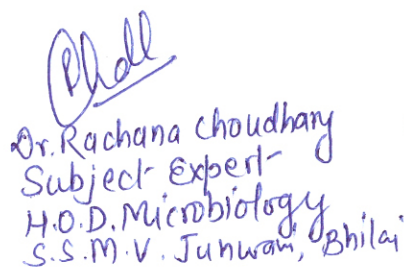 Dr. Rachana Choudhary
Subject Expert
H.O.D. Microbiology
S.S.M.V. Junwani, Bhilai